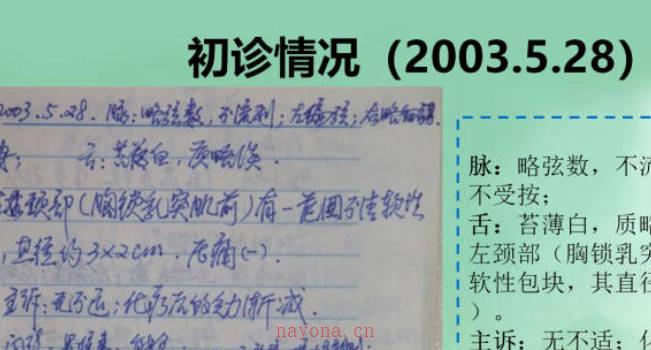 初诊情况（2003.5.28）
2003.5.28. 脉：略弦数，不流利；左
舌：苔薄白，质略淡.
颈部（胸锁乳突肌前）有一范围不清软性
其径约3×2cm. 压痛(-).
主诉：无不适；化疗后听力渐减.
脉：略弦数，不流
不受按；
舌：苔薄白，质略
左颈部（胸锁乳突
软性包块，其直径
）。
主诉：无不适；化
nayona.cn